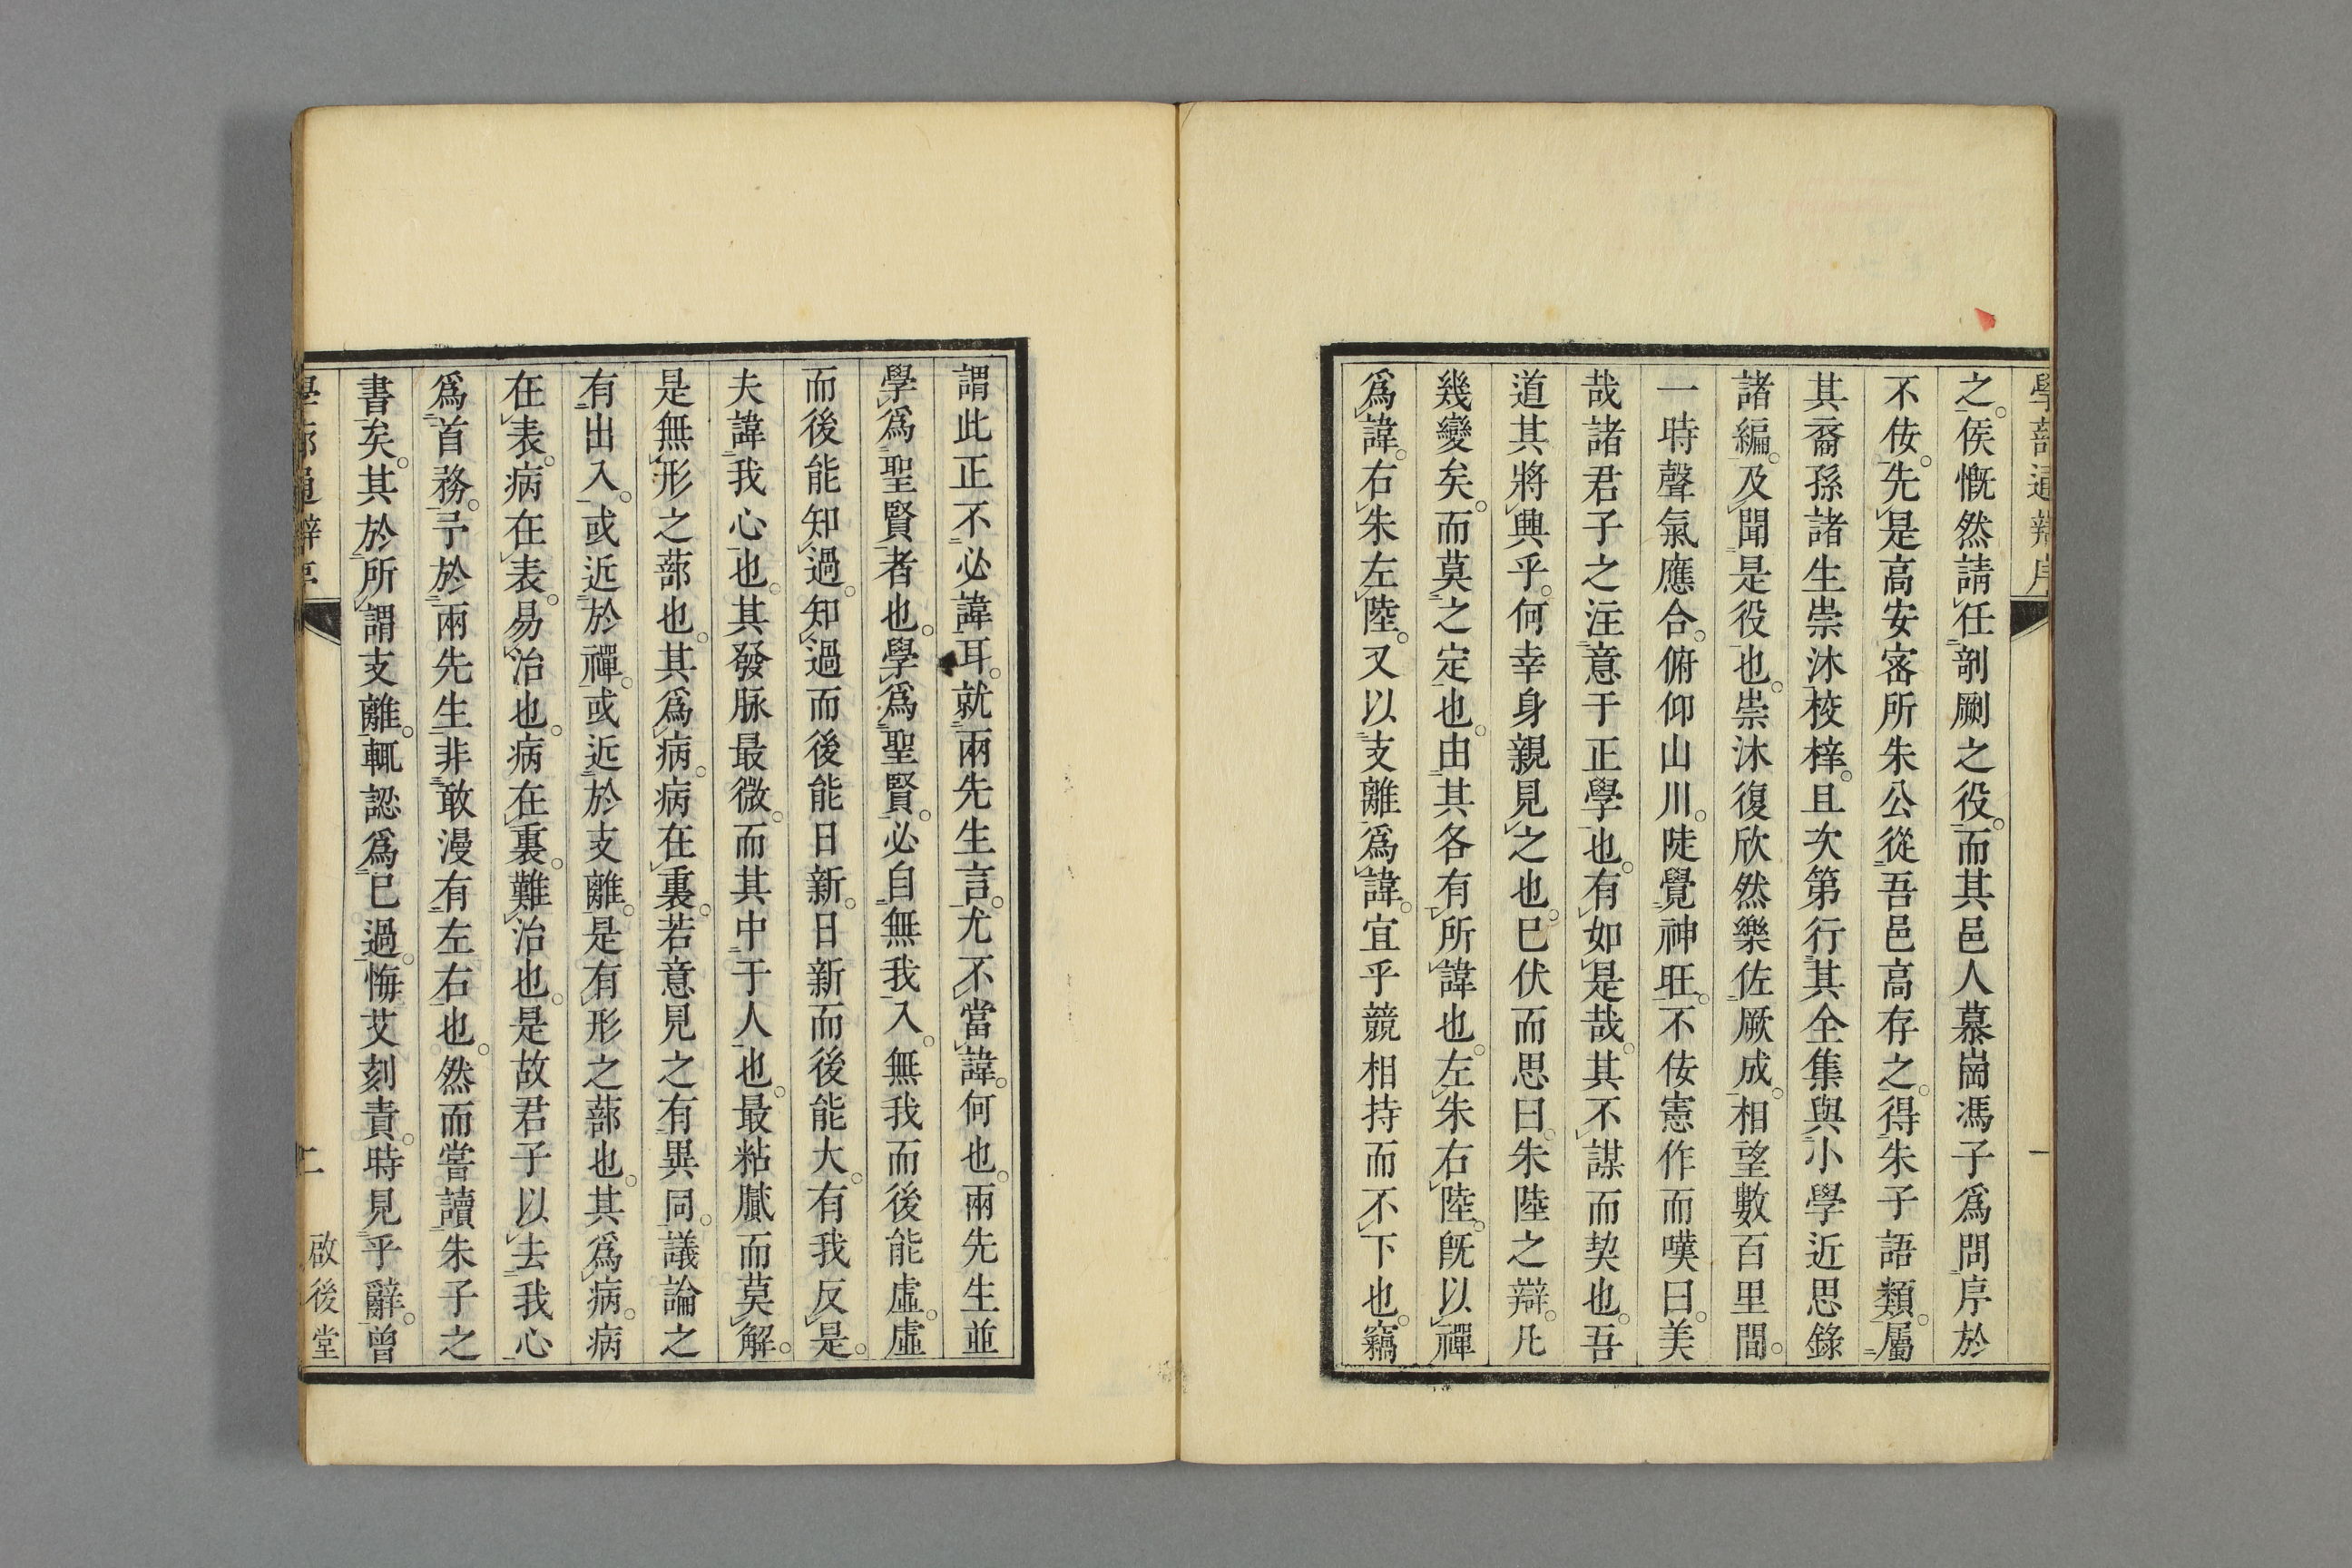 學蔀通辯序
一
之侯慨然請任剞劂之役而其邑人慕崗馮子爲問序於
不佞先是高安宻所朱公從吾邑高存之得朱子語類屬
其裔孫諸生崇沐校梓且次第行其全集與小學近思錄
諸編及聞是役也崇沐復欣然樂佐厥成相望數百里間
一時聲氣應合俯仰山川陡覺神旺不佞憲作而嘆曰美
哉諸君子之注意于正學也有如是哉其不謀而契也吾
道其將興乎何幸身親見之也已伏而思曰朱陸之辯凡
幾變矣而莫之定也由其各有所諱也左朱右陸旣以禪
爲諱右朱左陸又以支離爲諱宜乎競相持而不下也竊
謂此正不必諱耳就兩先生言尤不當諱何也兩先生並
學爲聖賢者也學爲聖賢必自無我入無我而後能虛虛
而後能知過知過而後能日新日新而後能大有我反是
夫諱我心也其發脉最微而其中于人也最粘膩而莫解
是無形之蔀也其爲病病在裏若意見之有異同議論之
有出入或近於禪或近於支離是有形之蔀也其爲病病
在表病在表易治也病在裏難治也是故君子以去我心
爲首務予於兩先生非敢漫有左右也然而嘗讀朱子之
書矣其於所謂支離輒認爲已過悔艾刻責時見乎辭曾
學蔀通辯序
二
啟後堂